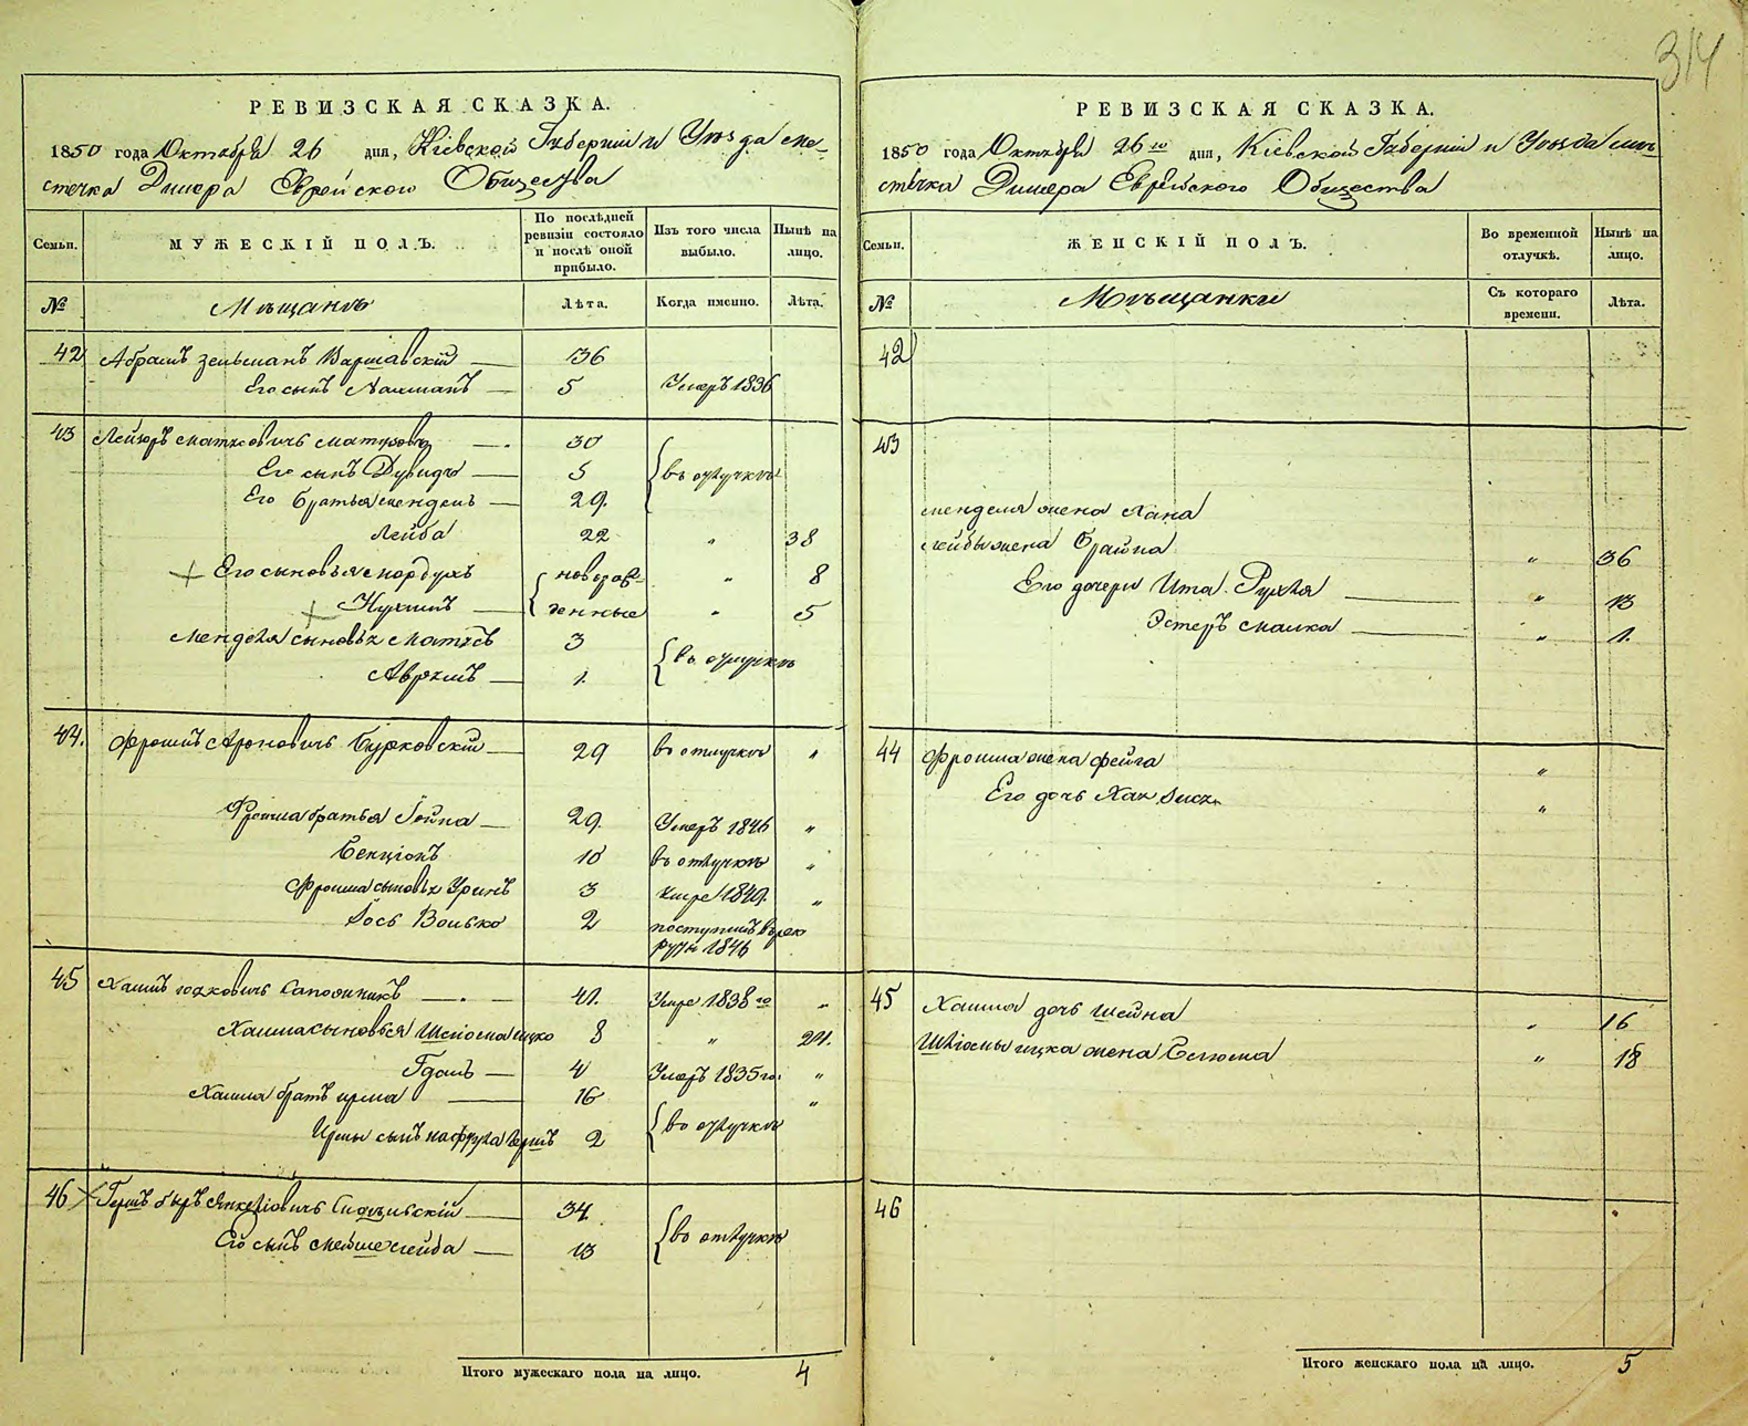 314
РЕВИЗСКАЯ СКАЗКА.
1850 года Октября 26 дня, Кіевской Губерніи и Уѣзда мѣ-
стечка Димера Еврейского Общества
Семьи.
МУЖЕСКІЙ ПОЛЪ.
По послѣдней ревизіи состояло и послѣ оной прибыло.
Изъ того числа выбыло.
Нынѣ на лицо.
№
Мѣщанъ
Лѣта.
Когда именно.
Лѣта.
42 Абрамъ Зельманъ Варшавскій 36
Его сынъ Нахманъ 5 Умеръ 1836
43 Лейзоръ Матусовичъ 30
Его сынъ Дувидъ 5 въ отлучкѣ
Его братья Мендель 29.
Лейба 22 " 38
+ Его сыновья Мордухъ новорож- " 8
+ Нухимъ денные " 5
Менделя сыновья Матусъ 3 въ отлучкѣ
Аврумъ 1.
44. Фроимъ Ароновичъ Бурковскій 29 въ отлучкѣ "
Фроима братья Гойна 29. Умеръ 1846 "
Бенціонъ 10 въ отлучкѣ "
Фроима сыновья 3 умре 1849. "
Іось Волько 2 поступилъ въ рек
руты 1846
45 Хаимъ Сапожникъ 41. Умре 1838 го "
Хаима сыновья Шліома Ицко 8 " 24.
4 Умеръ 1835 го. "
Хаима братъ Ирма 16 "
Ирмы сынъ Нафтула Гершъ 2 въ отлучкѣ
46 Гершъ Беръ Янкеліовичъ 34.
Его сынъ Мейше Лейба 13 въ отлучкѣ
Итого мужескаго пола на лицо. 4
РЕВИЗСКАЯ СКАЗКА.
1850 года Октября 26 го дня, Кіевской Губерніи и Уѣзда мѣ-
стечка Димера Еврейского Общества
Семьи.
ЖЕНСКІЙ ПОЛЪ.
Во временной отлучкѣ.
Нынѣ на лицо.
№
Мѣщанки
Съ котораго времени.
Лѣта.
42
43
Менделя жена Хана
Лейбы жена Брайна " 36
Его дочери Ита Рухля " 13
Эстеръ Малка " 1.
44 Фроима жена Фейга "
Его дочь Хая "
45 Хаима дочь Шейна " 16
Шліомы Ицка жена " 18
46
Итого женскаго пола на лицо. 5